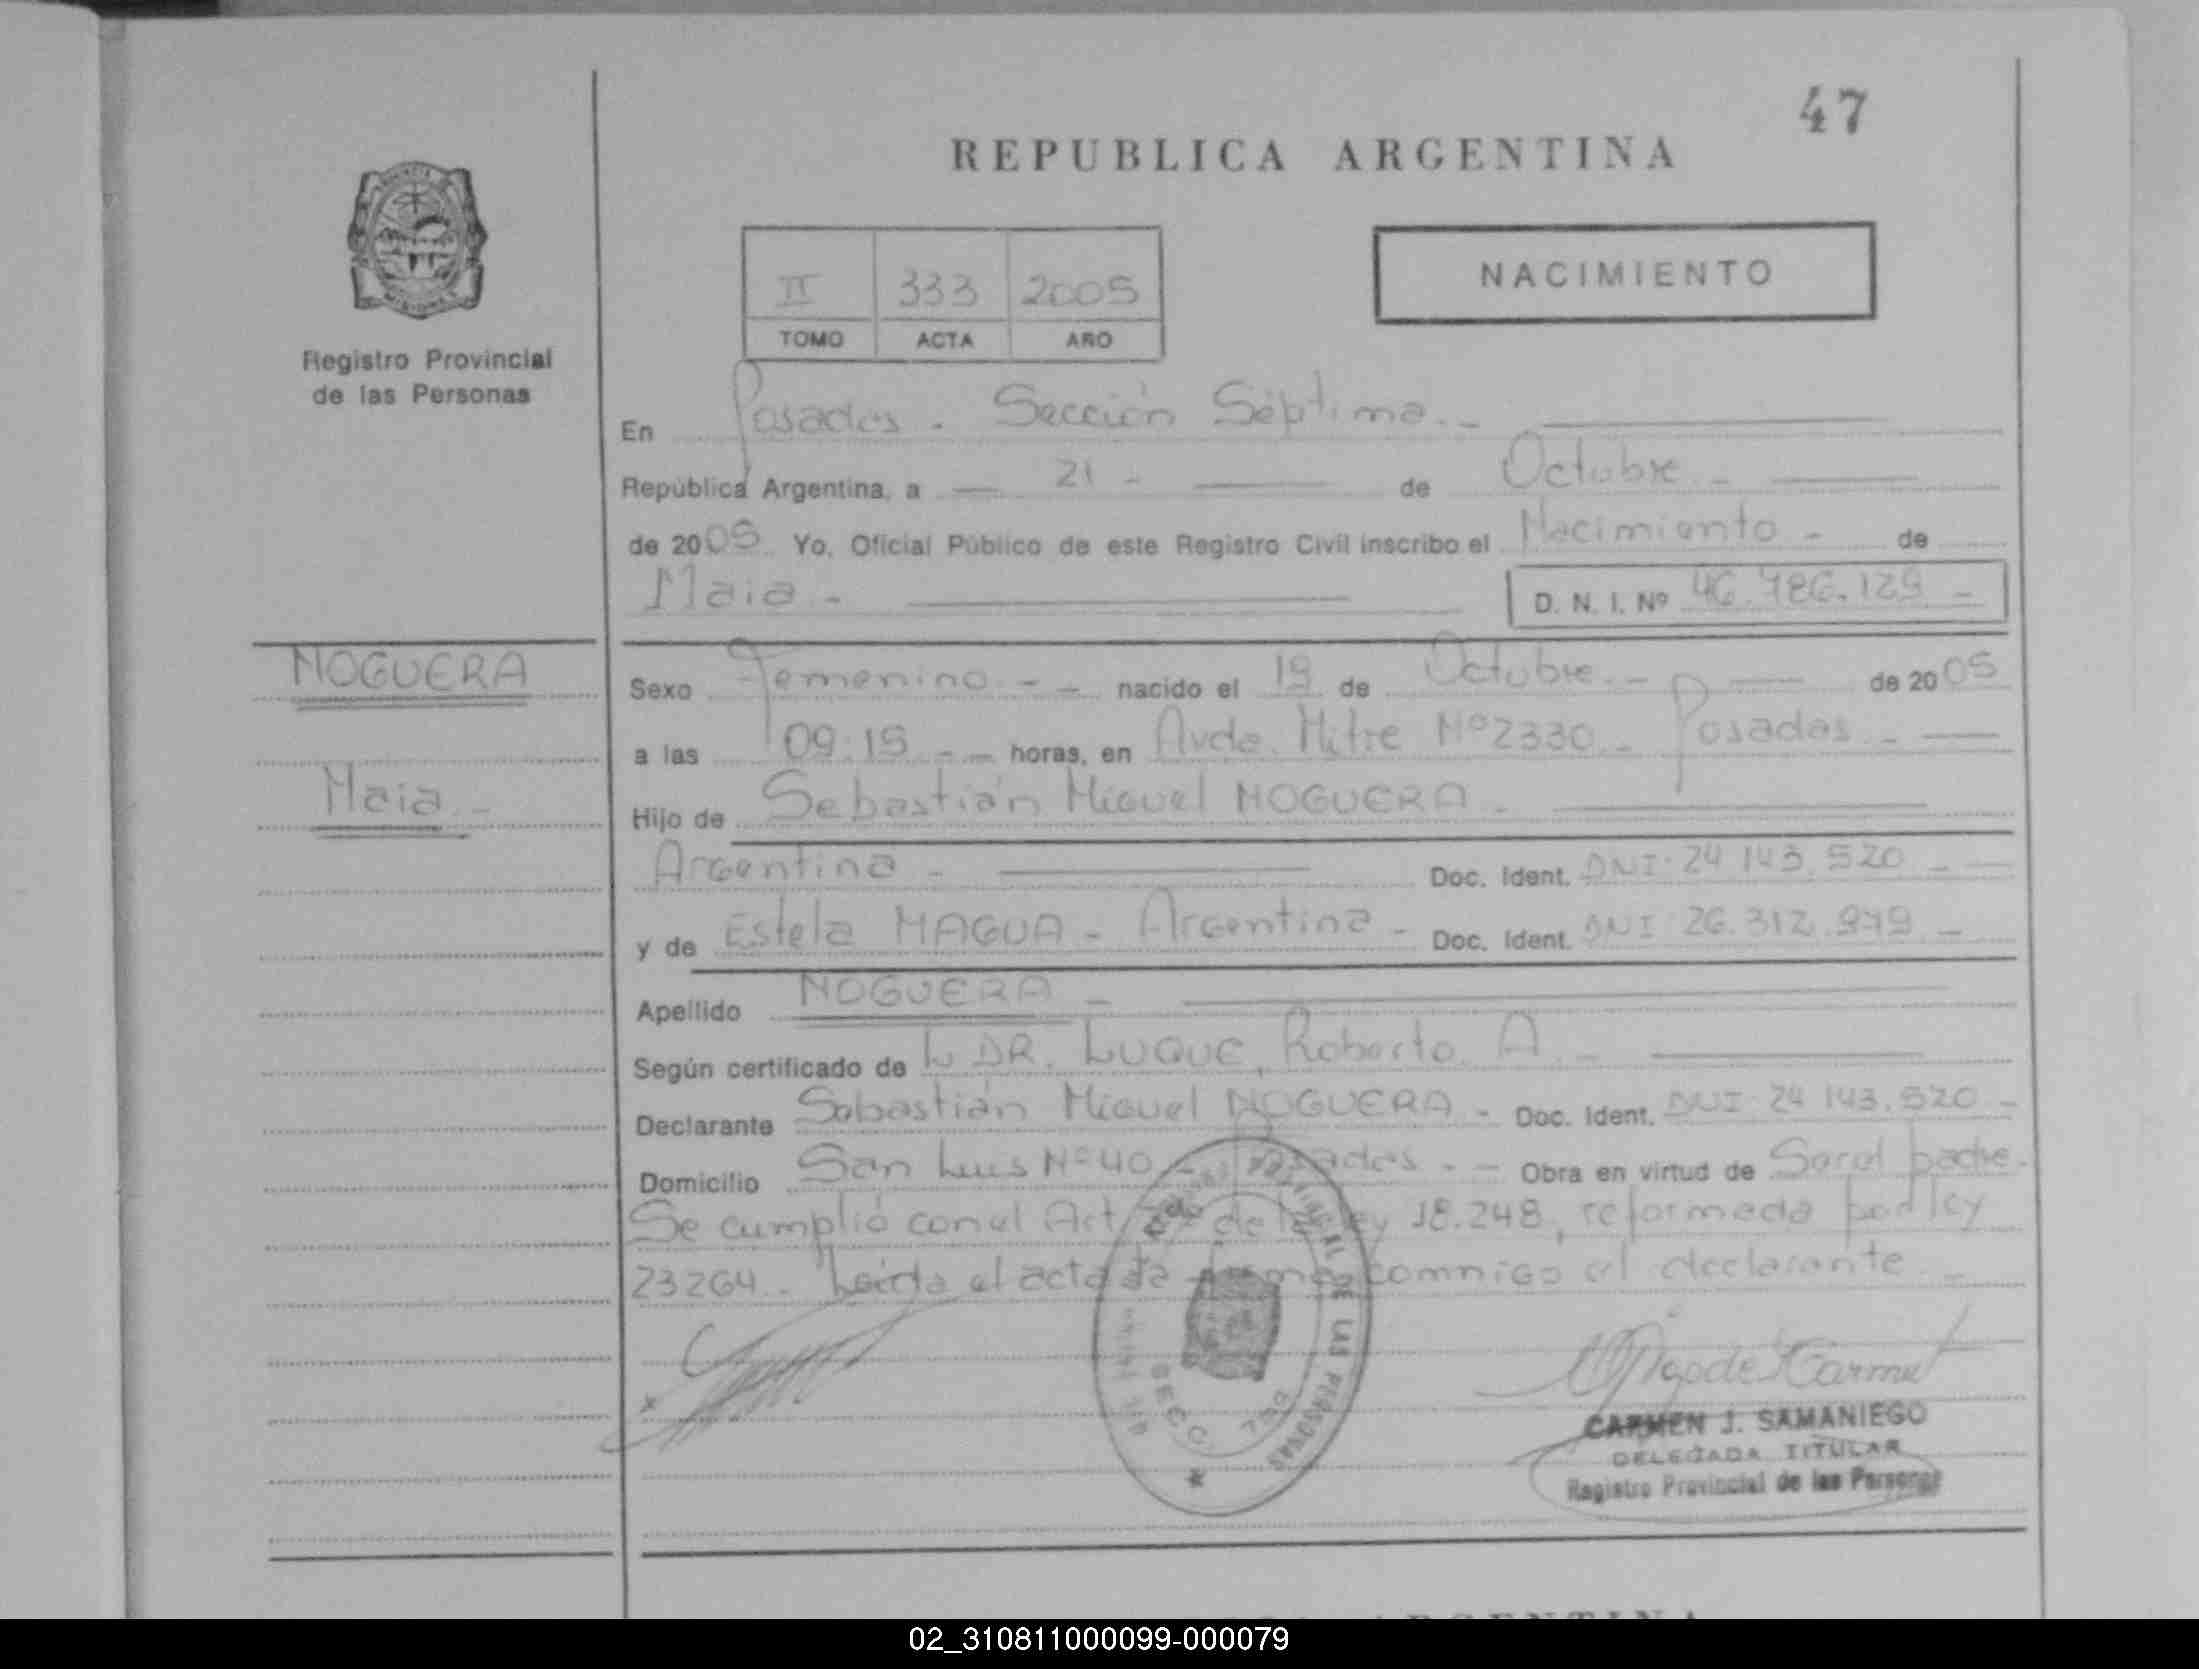 47
REPUBLICA ARGENTINA
PROVINCIA DE MISIONES
Registro Provincial
de las Personas
II 333 2005
TOMO ACTA AÑO
NACIMIENTO
En Posadas - Sección Séptima.-
República Argentina, a - 21 - de Octubre -
de 2005 Yo, Oficial Público de este Registro Civil inscribo el Nacimiento - de
Maia - D. N. I. Nº 46.786.129 -
NOGUERA
Maia -
Sexo Femenino - - nacido el 19 de Octubre.- de 2005
a las 09:15 - - horas, en Avda. Mitre Nº2330 - Posadas -
Hijo de Sebastián Miguel NOGUERA -
Argentina - Doc. Ident. DNI 24.143.520 -
y de Estela MAGUA - Argentina - Doc. Ident. DNI 26.312.979 -
Apellido NOGUERA -
Según certificado de DR. LUQUE, Roberto A. -
Declarante Sebastián Miguel NOGUERA - Doc. Ident. DNI 24.143.520 -
Domicilio San Luis Nº40 - Posadas - - Obra en virtud de Ser el padre.
Se cumplió con el Art de la ley 18.248, reformada por ley
23264.- Leída el acta la firma conmigo el declarante -
x
REGISTRO PROVINCIAL DE LAS PERSONAS
SECC
CARMEN J. SAMANIEGO
DELEGADA TITULAR
Registro Provincial de las Personas
ARGENTINA
02_310811000099-000079